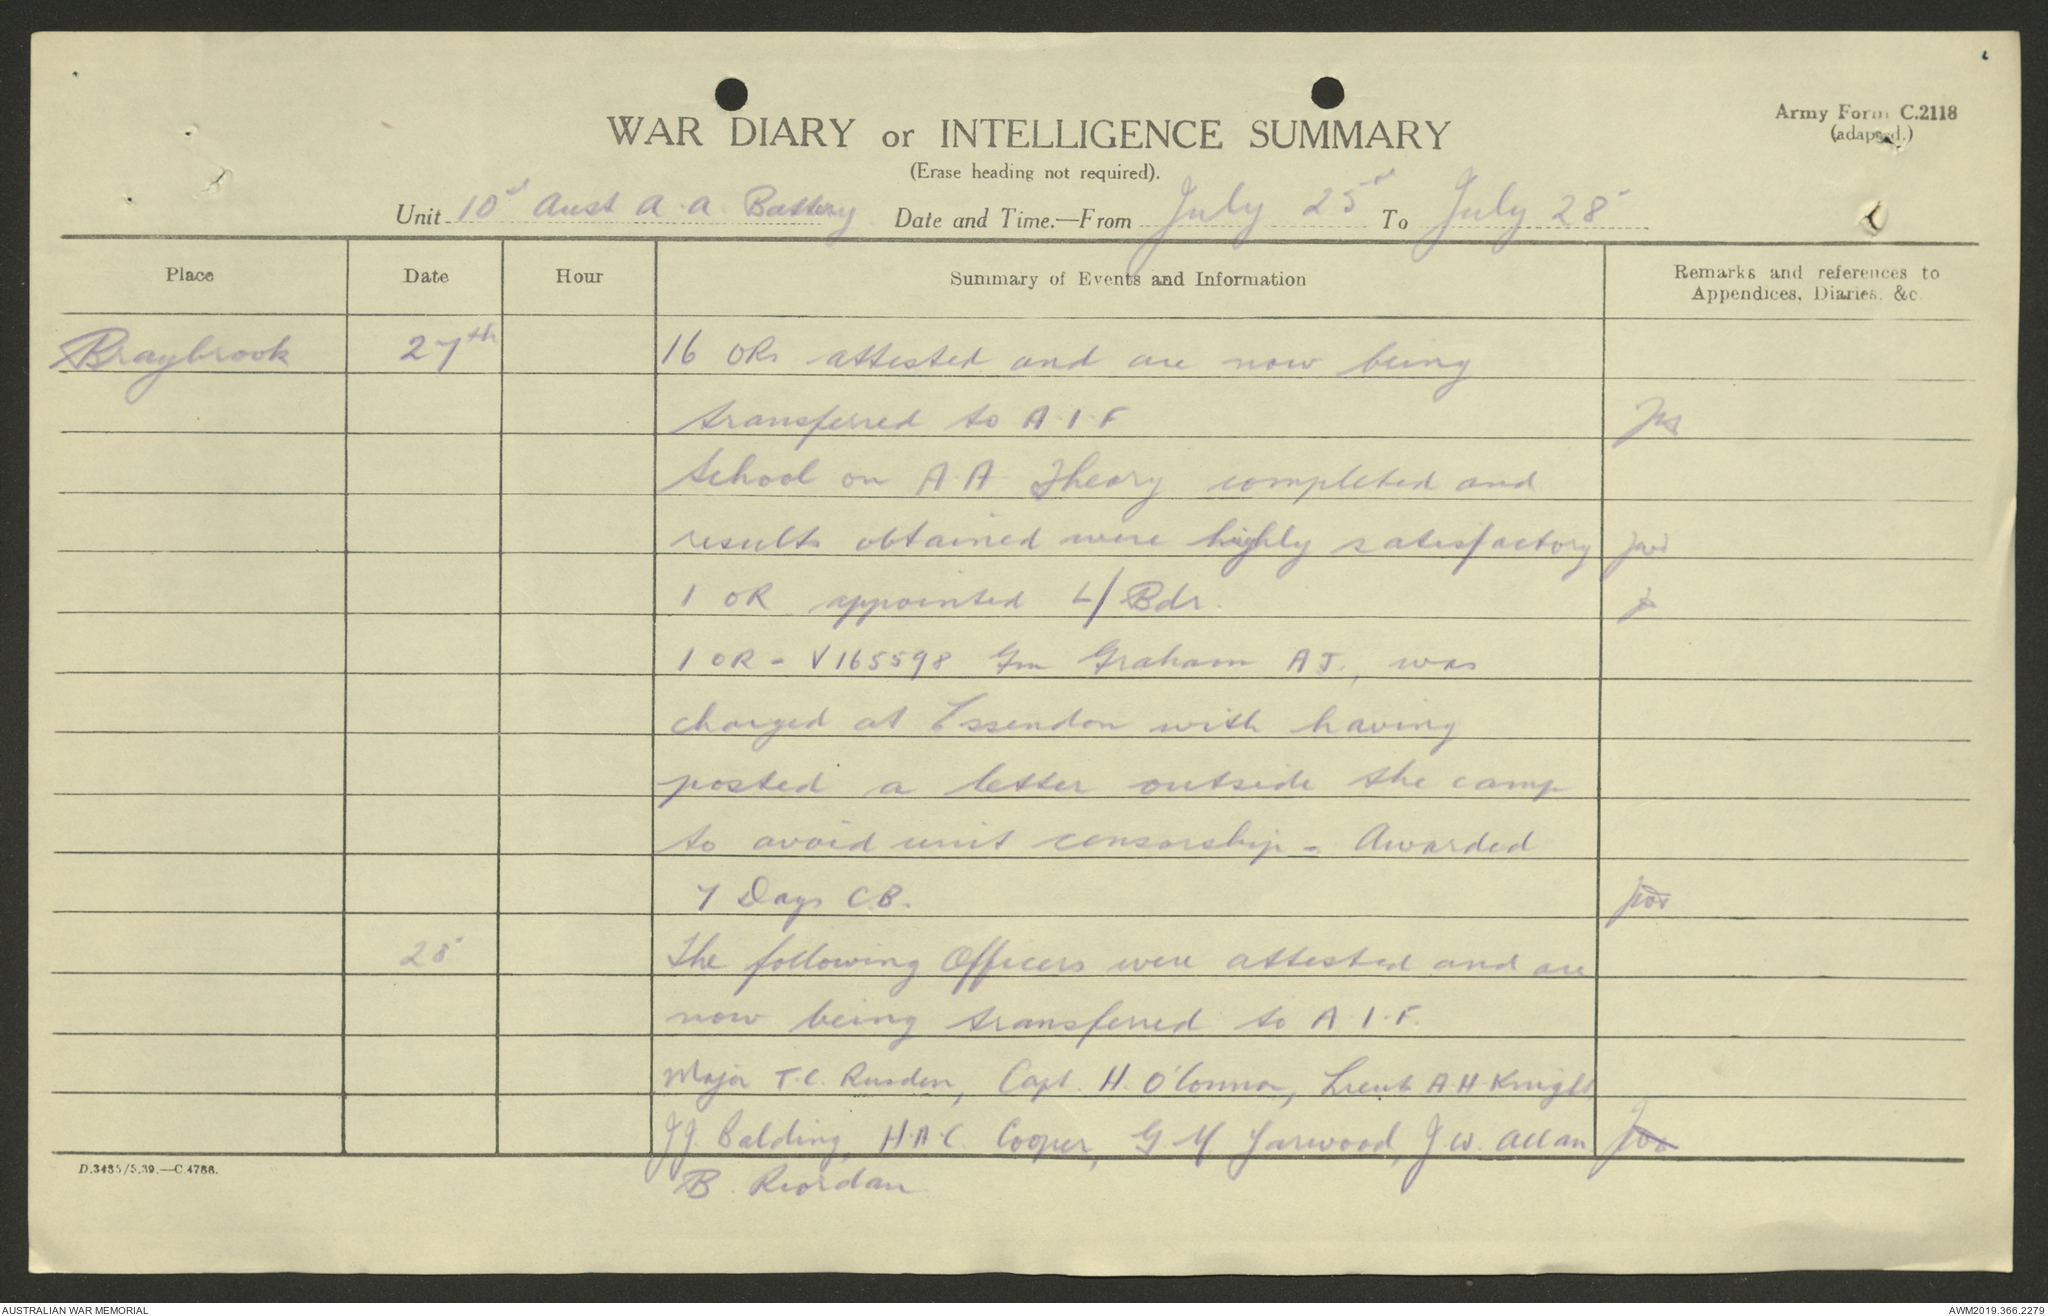 Army Form C.2118
(adapted.)
WAR DIARY or INTELLIGENCE SUMMARY
(Erase heading not required).
Unit 10th Aust A.A. Battery Date and Time.—From July 25th To July 28
Place Date Hour Summary of Events and Information Remarks and references to Appendices, Diaries, &c.
Braybrook 27th 16 ORs attested and are now being
transferred to A.I.F
School on A.A. Theory completed and
results obtained were highly satisfactory
1 OR appointed L/Bdr.
1 OR - V165598 Gnr Graham A J., was
charged at Essendon with having
posted a letter outside the camp
to avoid unit censorship - Awarded
7 Days C.B.
28 The following Officers were attested and are
now being transferred to A.I.F.
Major T.C. Rusden, Capt. H. O'Connor, Lieut A.H Knight
J J. Balding, H.A.C. Cooper, G. Y. Yarwood, J.W. Allan
B. Reordan
D.3485/5.39.—C.4786.
AUSTRALIAN WAR MEMORIAL
AWM2019.366.2279